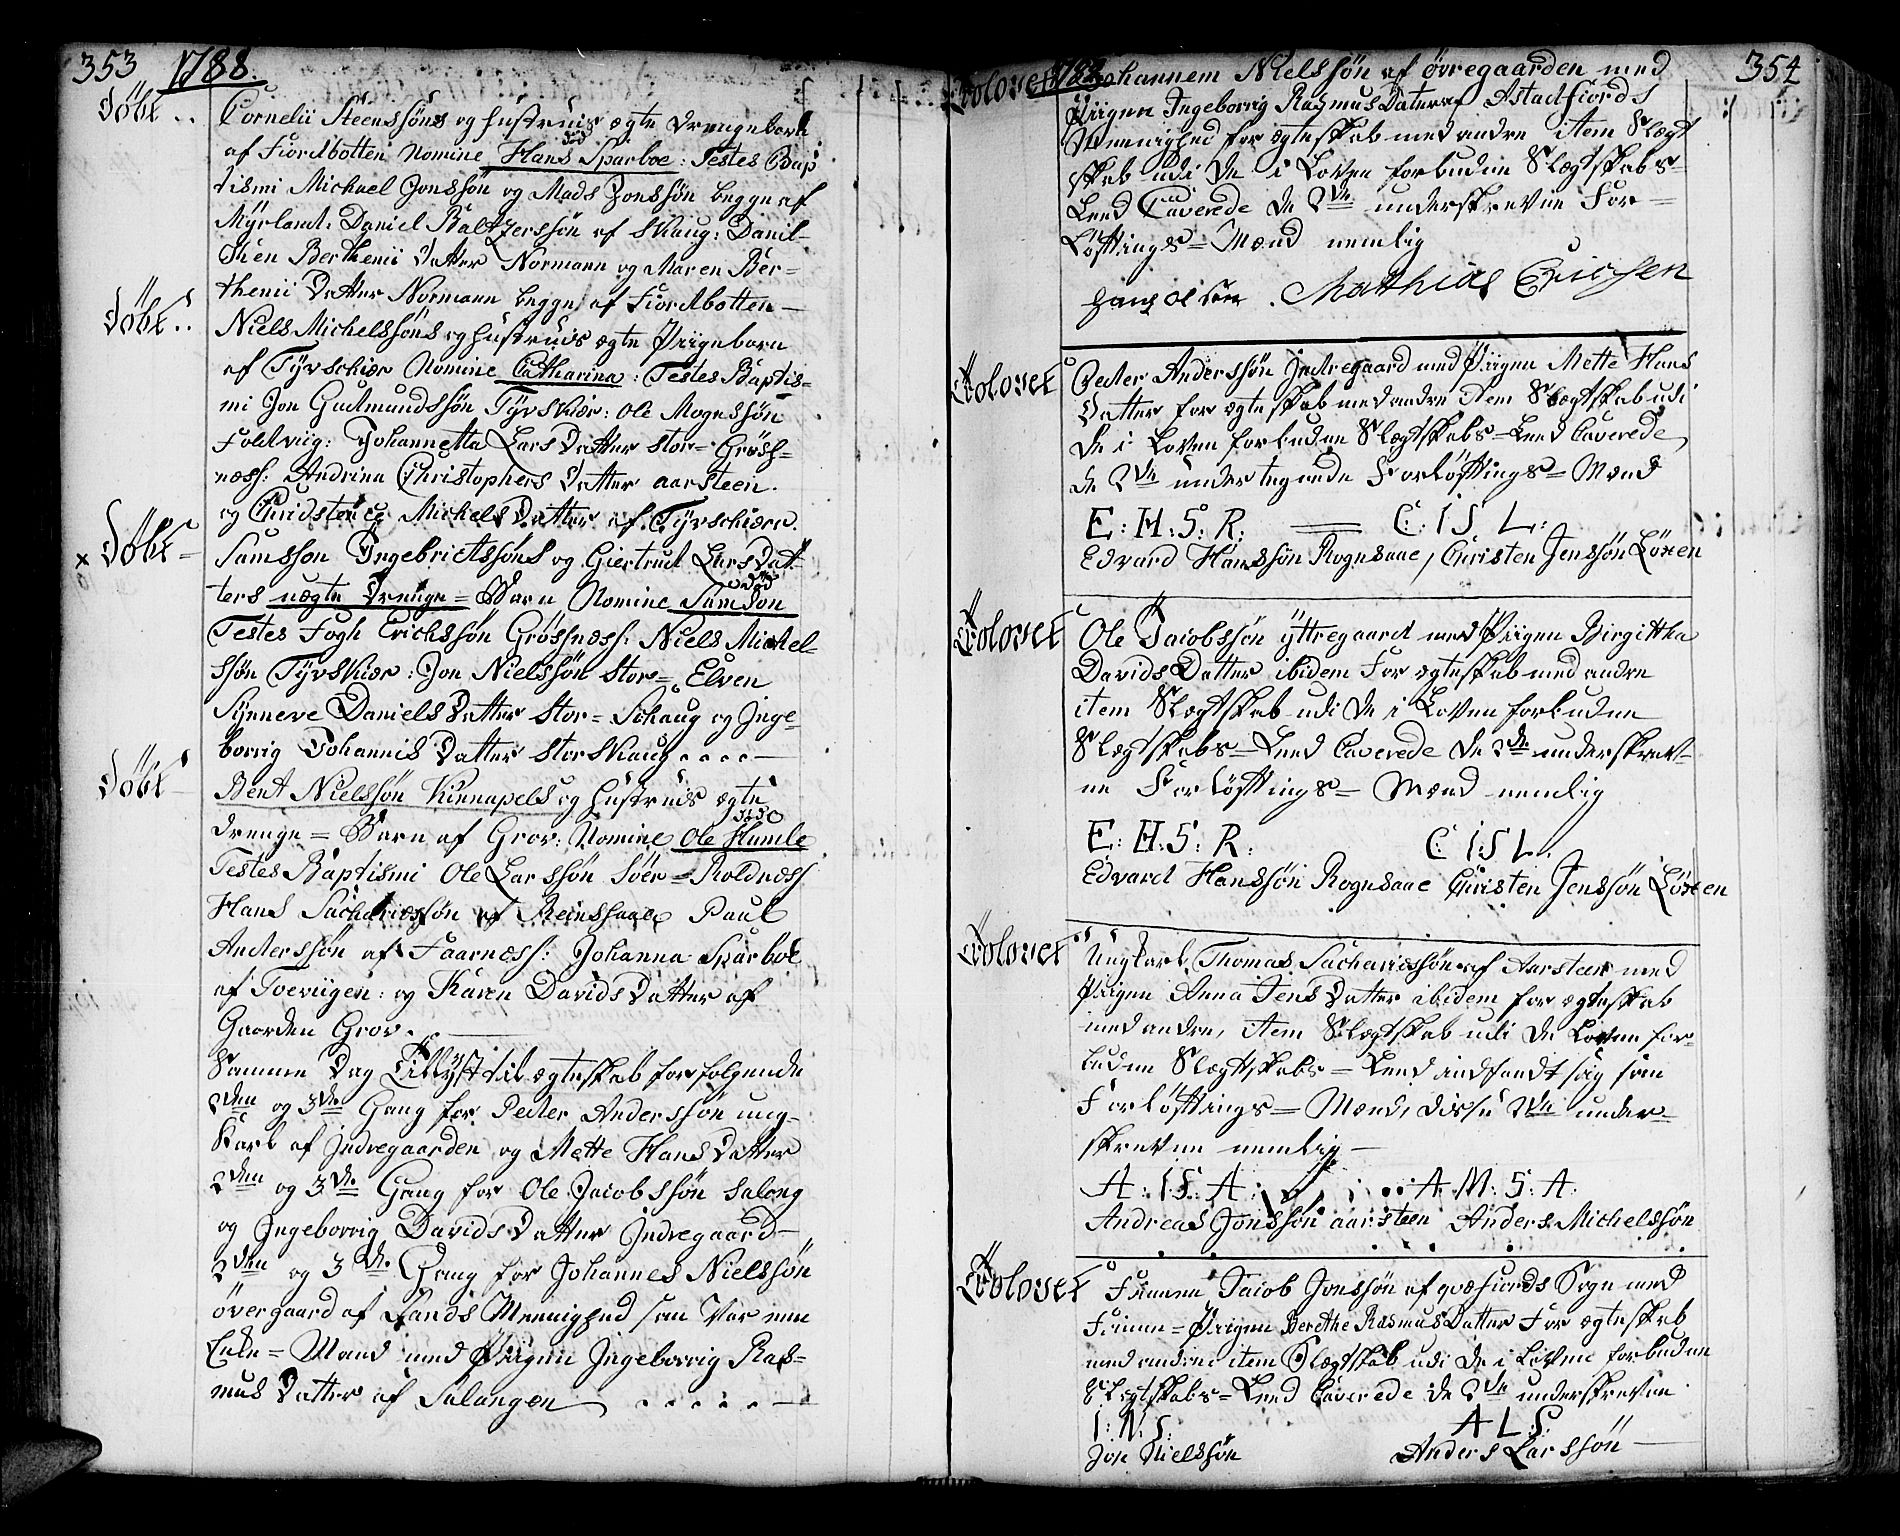 353 1788.
Döbt..
Cornelii Steenssöns og hustrues ægte drengebarn
af Fiordbotten Nomine Hans Sparboe: Testes Bap
död
tismi Michael Jonssön og Mads Jonssön begge af
Myrlant: Daniel Baltzerssön af Skaug: Danil-
Chen Berthenii Datter Normann og Maren Ber=
thenii Datter Normann begge af Fiordbotten —
Döbt..
Niels Michelssöns og hustrues ægte Piigebarn
af Tyvschiær Nomine Catharina: Testes Baptis=
mi Jon Gudmundssön Tyvskiær: Ole Mognssön
Foldviig: Johannetta Lars Datter stor= Gröss=
næss: Andrina Christophers Datter aarsteen.
og Michels Datter af Tyvschiær.
x Döbt —
Samsson Ingebrictssöns og Giertrud Lars Dat-
ters uægte Drenge= Barn Nomine Samson
död
Testes Fogh Erichssön Grössnæss: Niels Michel-
ssön Tyvskiær: Jon Nielssön Stor= Elven
Synneve Daniels Datter Stor= Schaug og Inge=
borrig Johannis Datter Storskaug....—
Döbt —
Bent Nielssön Kinnapels og hustrues ægte
drenge= Barn af Grov: Nomine Ole Humle
Testes Baptismi Ole Larssön Söer= Roldnæss
Hans Sachariæssön af Reinssaae Paul
Anderssön af Faarnæss: Johanna Sparboe
af Toeviigen: og Karen Davids Datter af
Gaarden Grov. —
Samme Dag Tillyst til ægteskab for følgende
2den og 3de Gang for Peder Anderssön ung-
Karl af Indregaarden og Mette Hans Datter
2den og 3de Gang for Ole Jacobssön Salang
og Ingeborrig Davids Datter Indregaard —
2den og 3de. Gang for Johannes Nielssön
övergaard af Sands Meenighed som Var enn
Enke= Mand med Piigen Ingeborrig Ras=
mus Datter af Salangen ......—
354
Trolovet Johannem Nielssön af övregaarden med
Piigen Ingeborrig Rasmus Datter af Astadfiords
Meenighed for ægteskab med andre item Slægt
skab udi De i Loven forbudne Slægtskabs=
Leed Caverede de 2de underskrevne For=
löftings= Mænd nemlig
Hans Olsen. Mathias Erichsen
Trolovet
Peder Anderssön Indregaard med Piigen Mette Hans
Datter for ægteskab med andre item Slægtskab udi
De i Loven forbudne Slægtskabs= Leed Caverede
de 2de undertegnede Forlöftings= Mænd
E: H: S: R. C: I S L:
Edvard Hanssön Rognsaae, Christen Jenssön Löxen
Trolovet
Ole Jacobssön yttregaard med Piigen Birgittha
Davids Datter ibidem For ægteskab med andre
item Slægtskab udi De i Loven forbudne
Slægtskabs= Leed Caverede de 2de underskrev-
ne Forlöftings= Mænd nemlig
E: H: S: R. C I S L.
Edvard Hanssön Rognsaae Christen Jenssön Löxen
Trolovet
Ungkarl Thomas Sachariæssön af Aarsteen med
Piigen Anna Jens Datter ibidem for ægteskab
med andre, item Slægtskab udi de Loven for=
budne Slægtskabs= Leed indfandt sig som
Forlöftings= Mænd, disse 2de under=
skrevne nemlig —
A: I S. A: A. M: S: A.
Andreas Jonssön aarsteen Anders Michelssön
Trolovet
Finnen Jacob Jonssön af qvæfiords Sogn med
Finne= Piigen Berethe Rasmus Datter For ægteskab
med andre item Slægtskab udi de i Loven forbudne
Slægtskabs= Leed Caverede de 2de underskrevne
I: N: S: A L: S.
Jon Nielssön Anders Larssön —